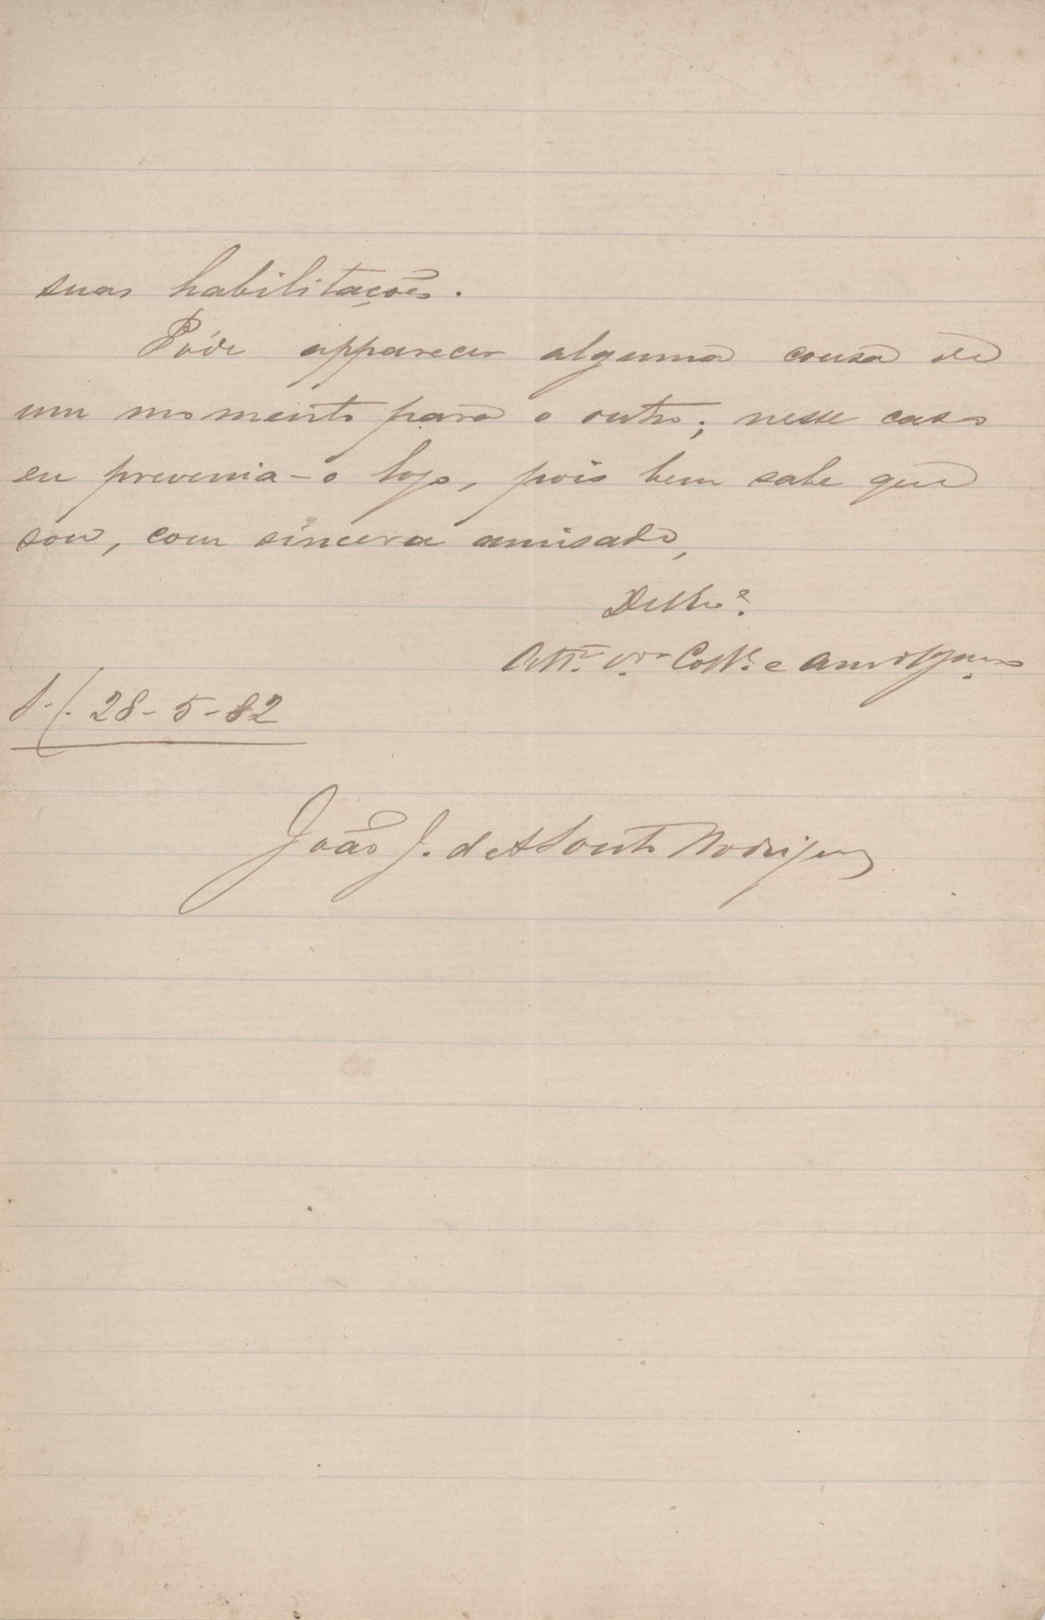 suas habilitações.
Póde apparecer alguma cousa de
um momento para o outro; nesse caso
eu prevenia-o logo, pois bem sabe que
sou, com sincera amisade,
Att.º V.ºr Coll.ª e am.º
S./C. 28-5-82
João J. d'A Souto Rodrigues